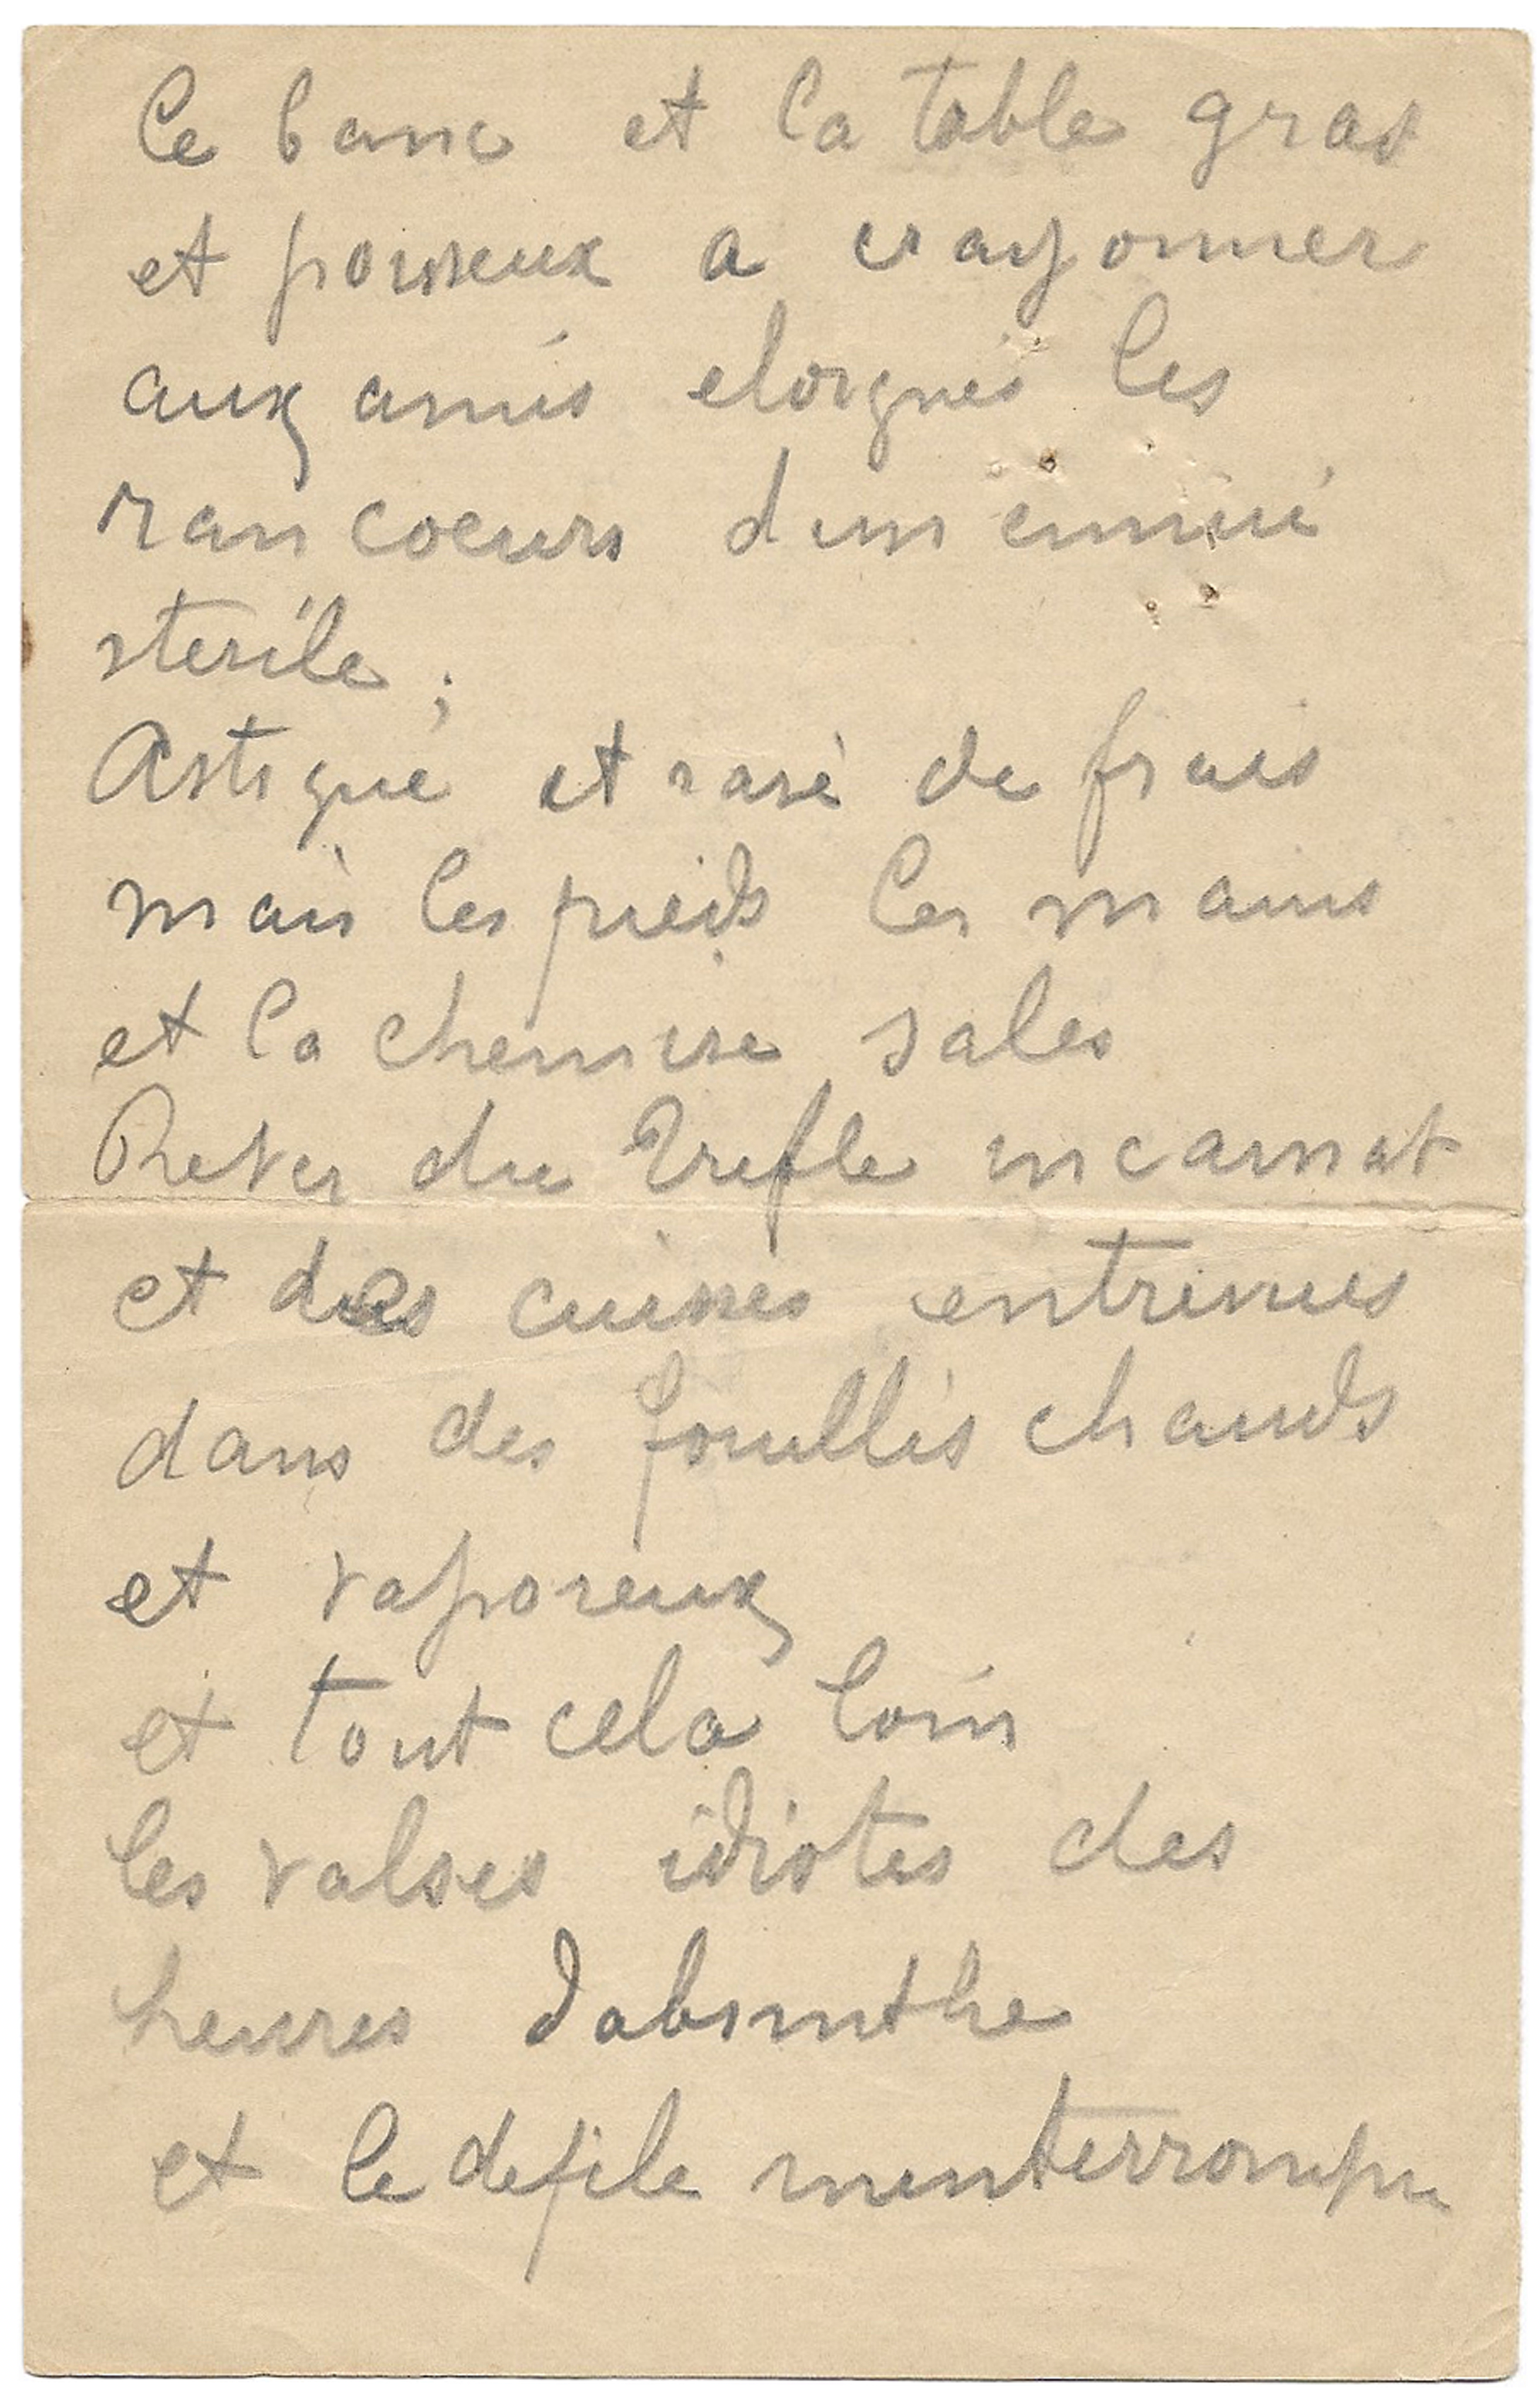 le banc et la table gras
et poisseux a crayonner
aux amis eloignés les
rancoeurs dun ennui
sterile ;
Astiqué et rasé de frais
mais les pieds les mains
et la chemise sales
Rever du Trefle incarnat
et des cuisses entrevues
dans des fouillis chauds
et vaporeux
et tout cela loin
les valses idiotes des
heures dabsinthe
et le defile ininterrompu